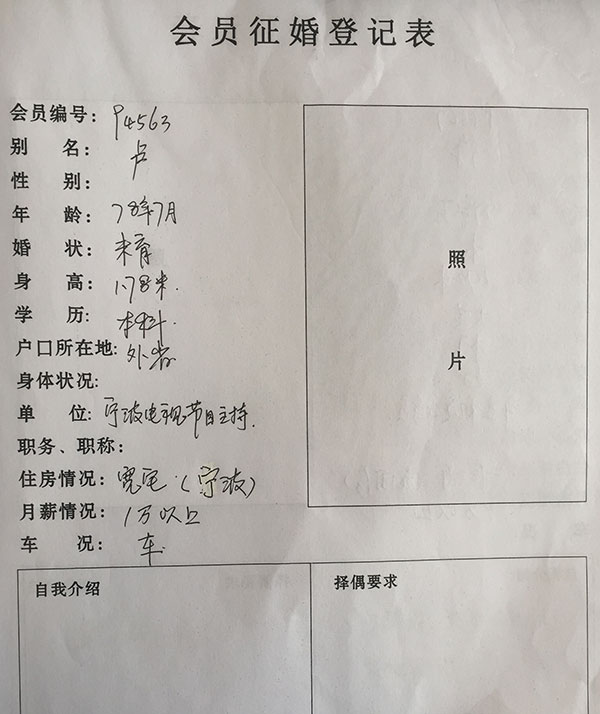 会员征婚登记表
会员编号: 94563
别 名: 卢
性 别:
年 龄: 78年7月
婚 状: 未育
身 高: 1.78米.
学 历: 本科.
户口所在地: 外省
身体状况:
单 位: 宁波电视节目主持.
职务、职称:
住房情况: 宽宅 (宁波)
月薪情况: 1万以上
车 况: 车.
照
片
自我介绍
择偶要求